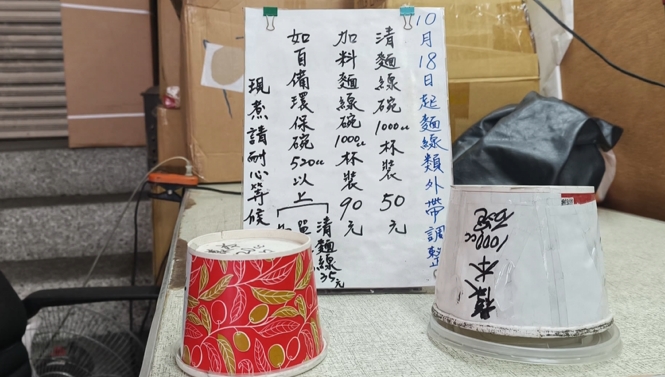 10月18日起麵線類外帶調整
清麵線碗1000cc杯裝50元
加料麵線碗1000cc杯裝90元
如自備環保碗520cc以上
清麵線35元
現煮請耐心等候
樣本
1000cc